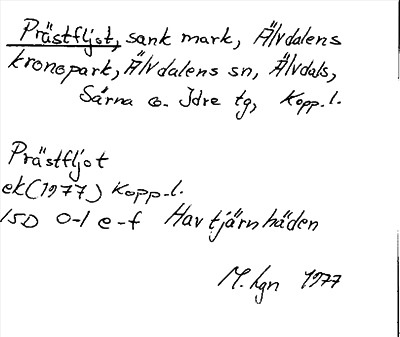 Prästfljot, sank mark, Älvdalens
kronopark, Älvdalens sn, Älvdals,
Särna o. Idre tg, Kopp.l.
Prästfljot
ek (1977) Kopp.l.
15D 0-1 e-f Havtjärnhäden
M. Lgn 1977